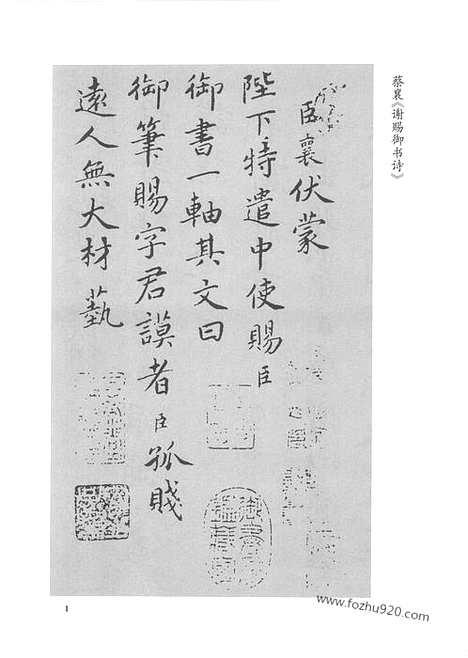 蔡襄《谢赐御书诗》
臣襄伏蒙
陛下特遣中使賜臣
御書一軸其文曰
御筆賜字君謨者臣孤賤
遠人無大材藝
1
www.fozhu920.com